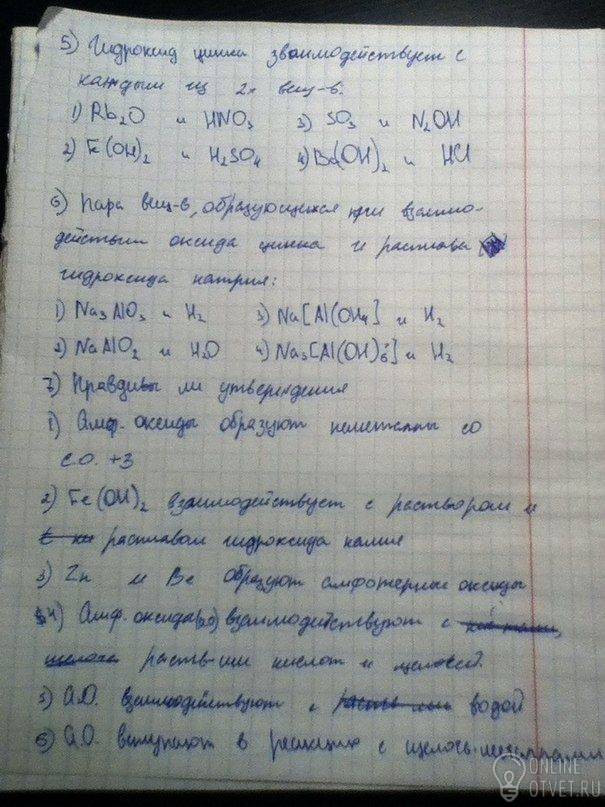 5) Гидроксид цинка взаимодействует с
каждым из 2х вещ-в.
1) Rb₂O и HNO₃ 3) SO₃ и N₂OH
2) Fe(OH)₂ и H₂SO₄ 4) Ba(OH)₂ и HCl
6) Пара вещ-в, образующихся при взаимо-
действии оксида цинка и расплава
гидроксида натрия:
1) Na₃AlO₃ и H₂ 3) Na[Al(OH₄] и H₂
2) NaAlO₂ и H₂O 4) Na₃[Al(OH)₆] и H₂
7) Правдивы ли утверждения
1) Амф. оксиды образуют неметаллы со
с.о. +3
2) Fe(OH)₂ взаимодействует с раствором и
расплавом гидроксида калия
3) Zn и Be образуют амфотерные оксиды
4) Амф. оксиды(ao) взаимодействуют с
раств-ми кислот и щелочей.
5) А.О. взаимодействуют с водой
6) А.О. вступают в реакцию с щелочь-металлами
ONLINE
OTVET.RU